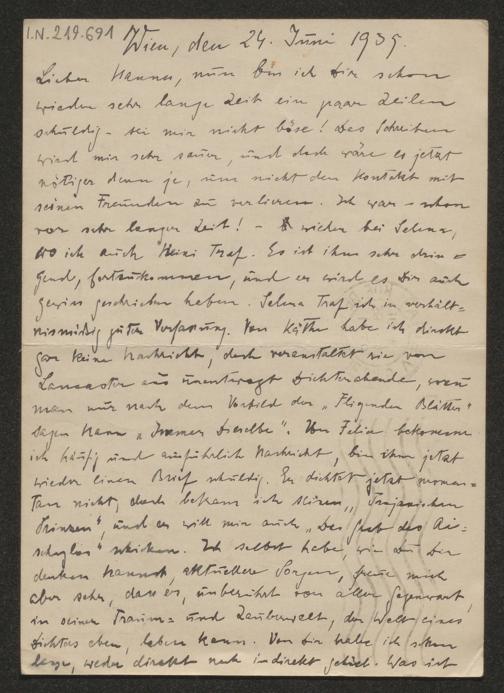 I.N. 219.691
Wien, den 24. Juni 1939.
Lieber Hannes, nun bin ich Dir schon
wieder sehr lange Zeit ein paar Zeilen
schuldig - sei mir nicht böse! Das Schreiben
wird mir sehr sauer, und doch wäre es jetzt
nötiger denn je, um nicht den Kontakt mit
seinen Freunden zu verlieren. Ich war - schon
vor sehr langer Zeit! - wieder bei Selma,
wo ich auch Heini traf. Es ist ihm sehr drin=
gend, fortzukommen, und er wird es Dir auch
gewiss geschrieben haben. Selma traf ich in verhält=
nismäßig guter Verfassung. Von Käthe habe ich direkt
gar keine Nachricht, doch veranstaltet sie von
Lancaster aus unentwegt Dichterabende, wozu
man nur nach dem Vorbild der „Fliegenden Blätter"
sagen kann „Immer Dieselbe". Von Felix bekomme
ich häufig und ausführlich Nachricht, bin ihm jetzt
wieder einen Brief schuldig. Er dichtet jetzt momen=
tan nicht, doch bekam ich seinen „Trojanischen
Prinzen", und er will mir auch „Das Fest des Ai=
schylos" schicken. Ich selbst habe, wie Du Dir
denken kannst, aktuellere Sorgen, freue mich
aber sehr, dass er, unberührt von aller Gegenwart,
in seiner Traum= und Zauberwelt, der Welt eines
Dichters eben, leben kann. Von Dir habe ich schon
lange, weder direkt noch indirekt gehört. Was ist